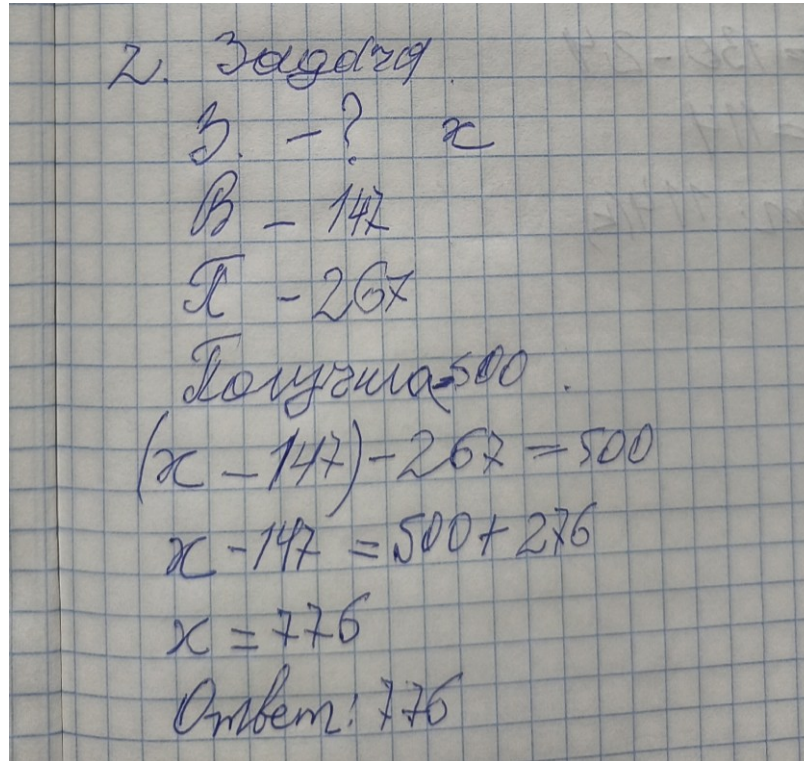 2. Задача.
З. - ? x
В - 147
П - 267
Получила-500.
(x - 147) - 267 = 500
x - 147 = 500 + 276
x = 776
Ответ: 776